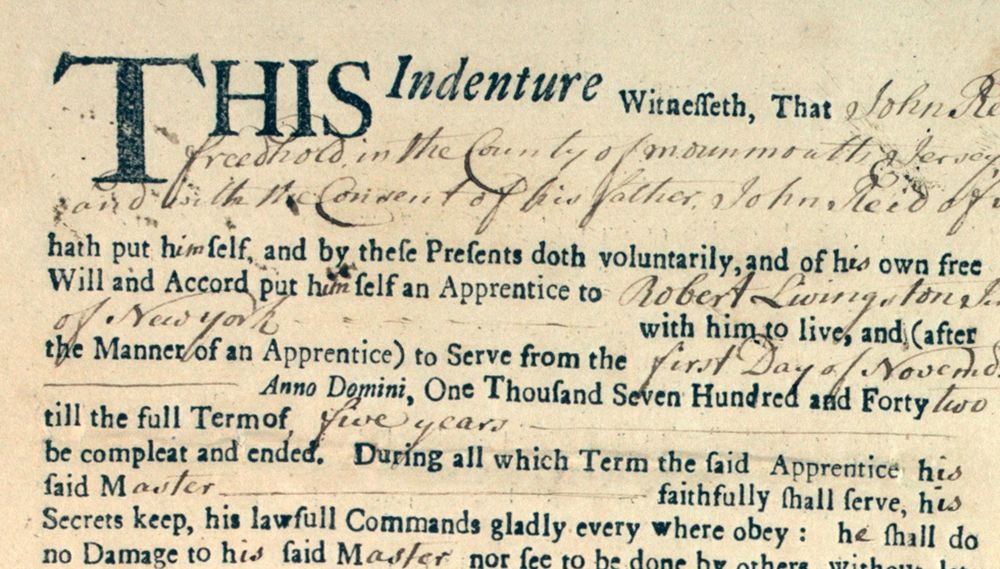 THIS Indenture Witnesseth, That John Re
freedhold in the County of mounmouth Jersey
and with the Consent of his father, John Reid of
hath put himself, and by these Presents doth voluntarily, and of his own free
Will and Accord put himself an Apprentice to Robert Livingston
of New york
with him to live, and (after
the Manner of an Apprentice) to Serve from the first Day of Novemb
Anno Domini, One Thousand Seven Hundred and Forty two
till the full Term of, five years
be compleat and ended. During all which Term the said Apprentice his
said Master faithfully shall serve, his
Secrets keep, his lawfull Commands gladly every where obey: he shall do
no Damage to his said Master nor see to be done by others, without